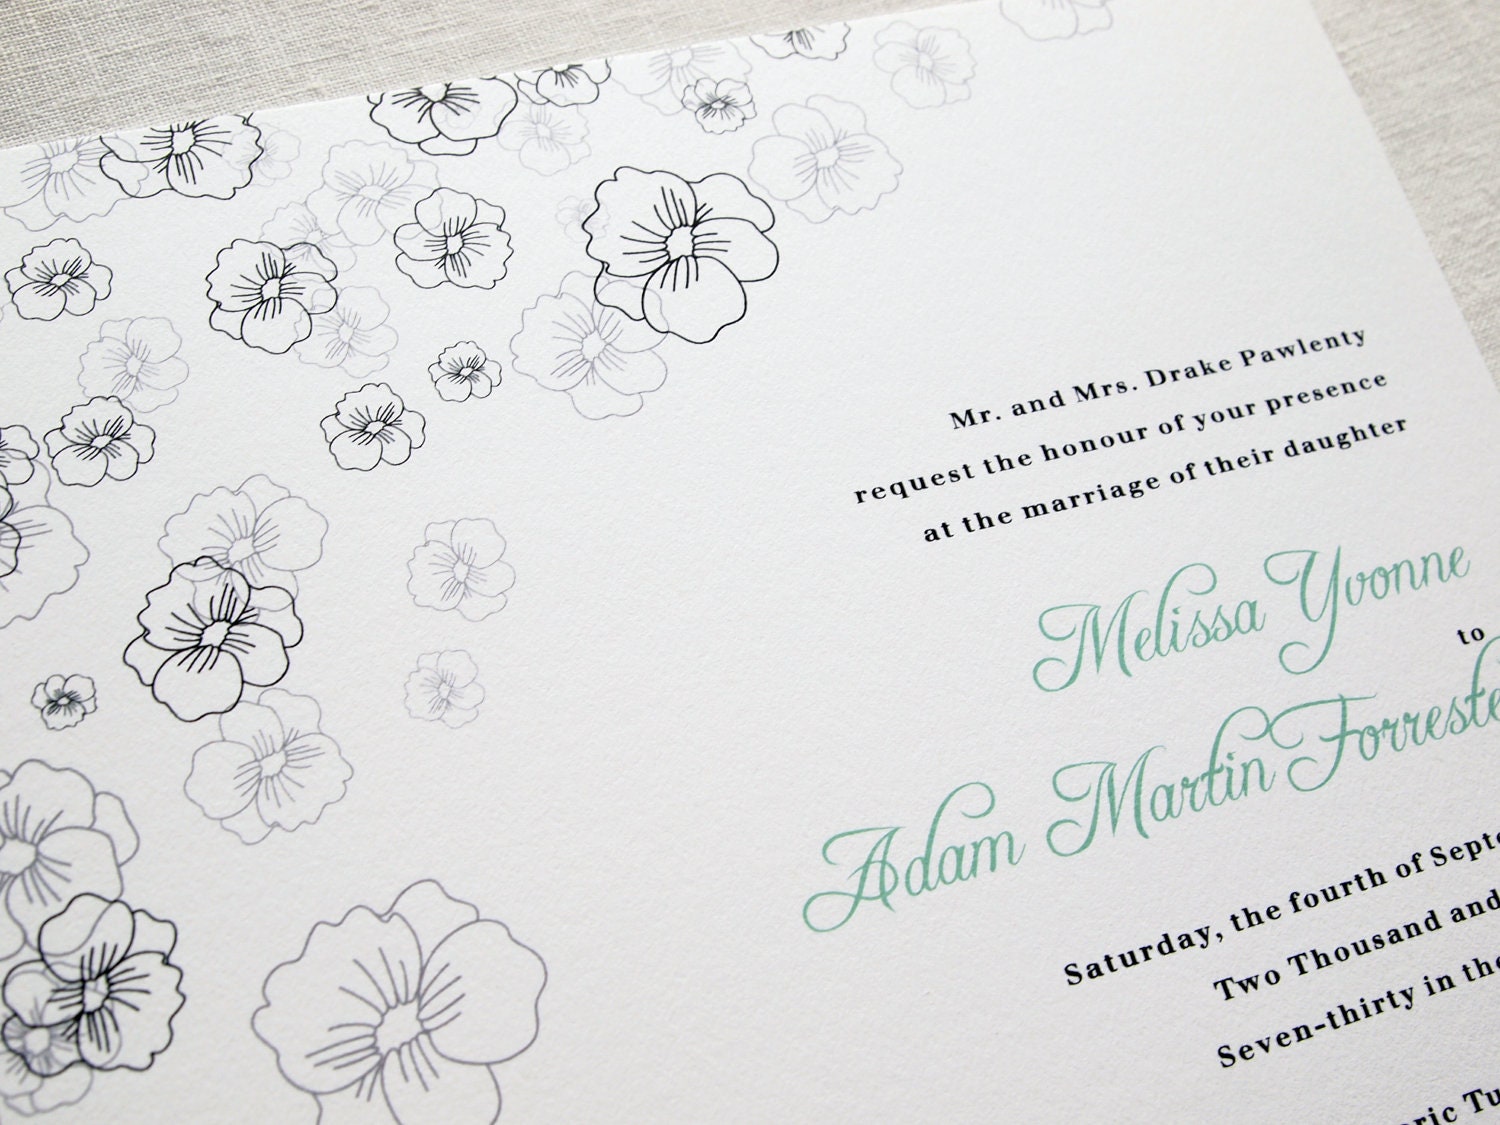 Mr. and Mrs. Drake Pawlenty
request the honour of your presence
at the marriage of their daughter
Melissa Yvonne
to
Adam Martin Forreste
Saturday, the fourth of Septe
Two Thousand and
Seven-thirty in the
ric Tu